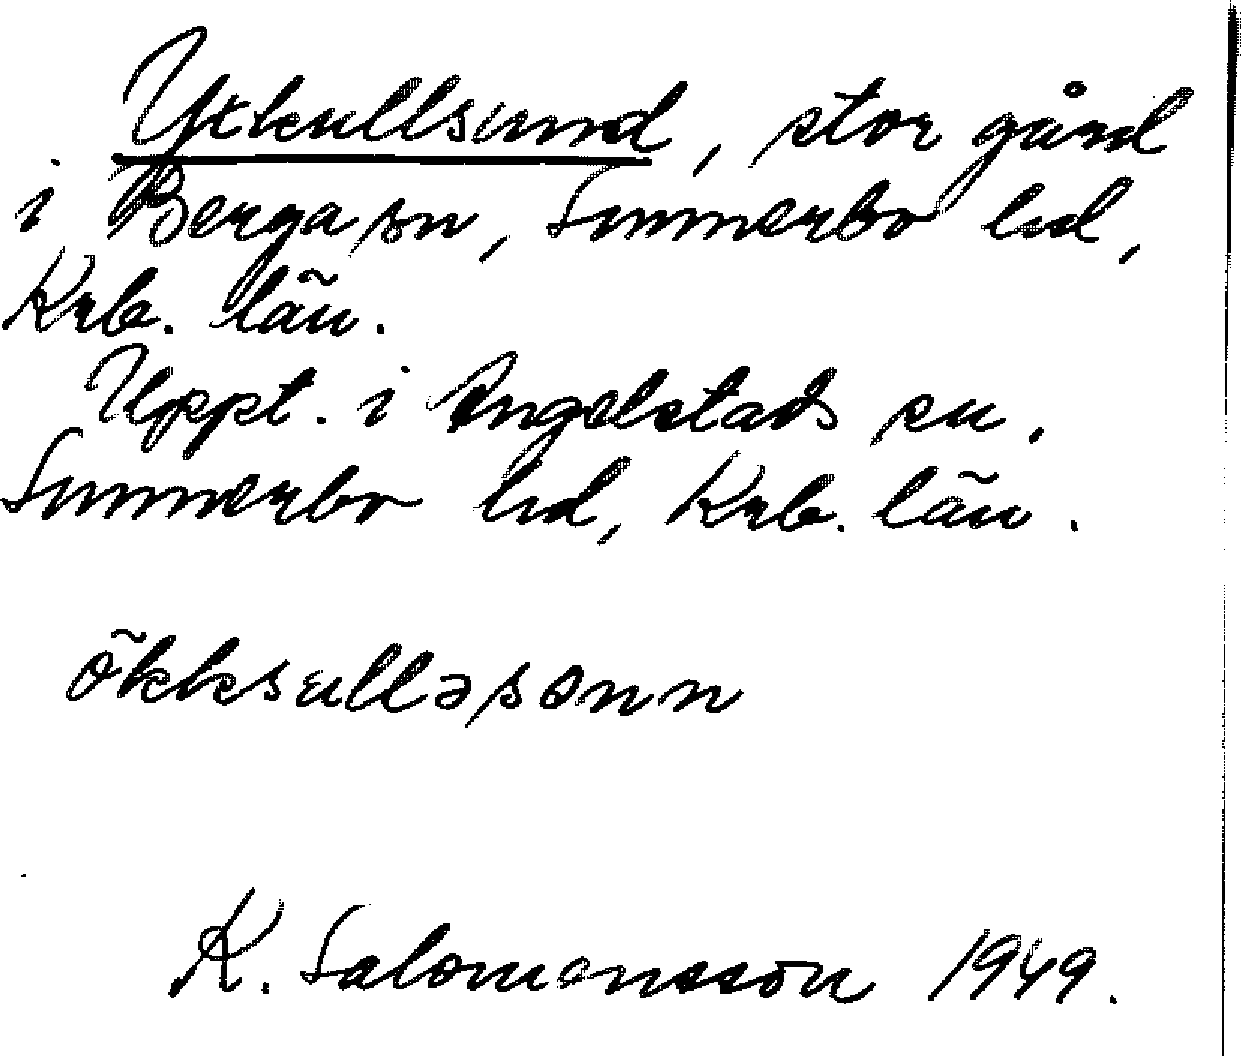 Yxkullsund, stor gård
i Berga sn, Sunnerbo hd,
Krb. län.
Uppt. i Angelstads sn.
Sunnerbo hd, Krb. län.
ökksulləsonn
K. Salomonsson 1949.